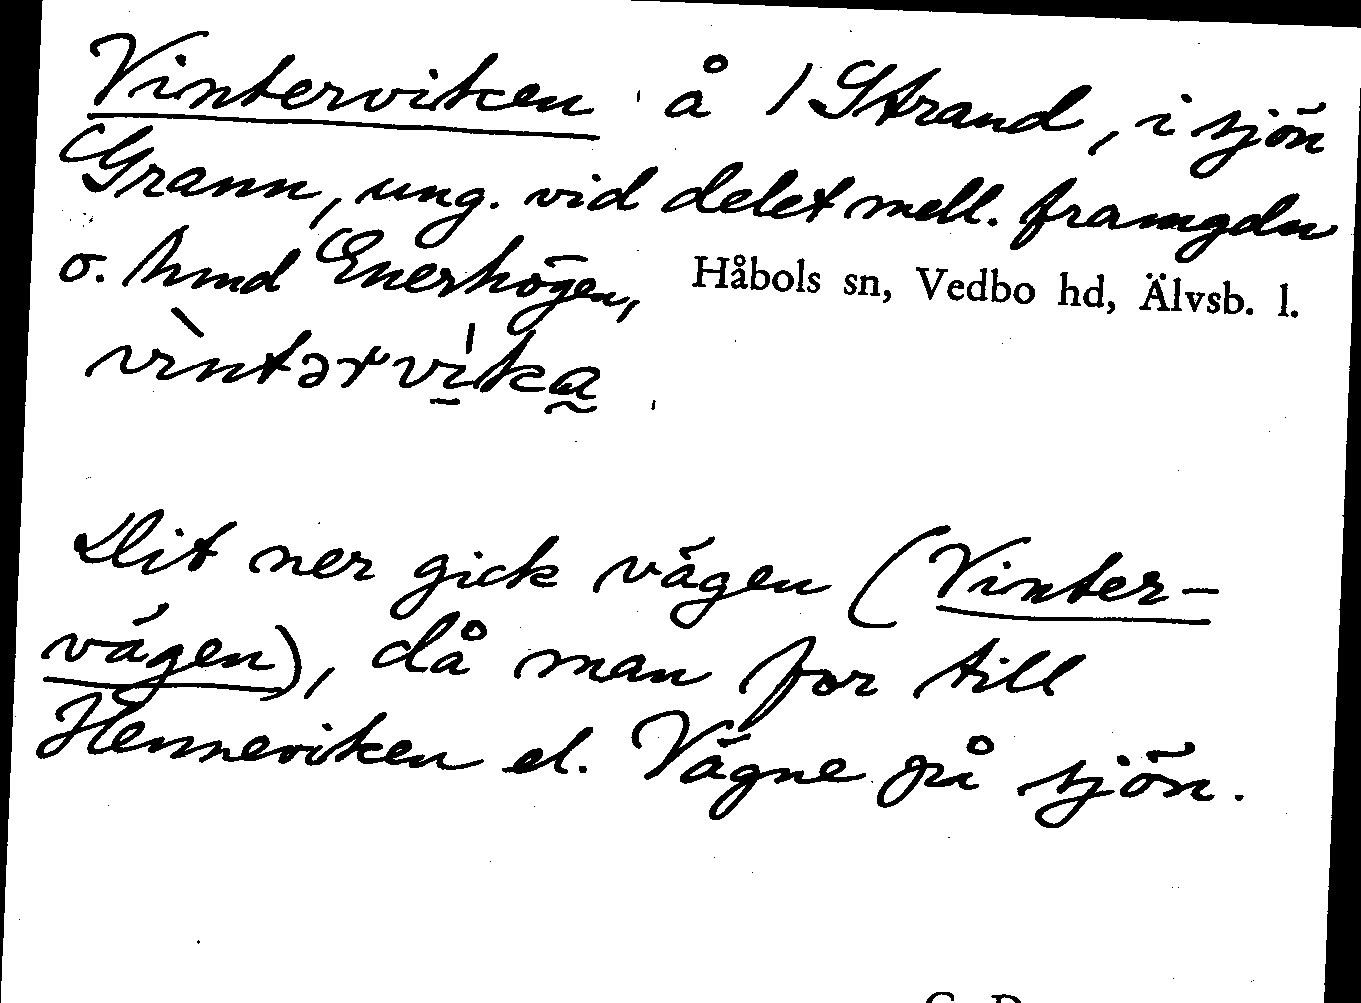 Vinterviken å 1 Strand, i sjön
Grann, ung. vid delet mell. framgdn
o. hmd Enerhögen, Håbols sn, Vedbo hd, Älvsb. l.
vìntərvi̱ka̰
Dit ner gick vägen (Vinter-
vägen), då man for till
Henneviken el. Vägne på sjön.